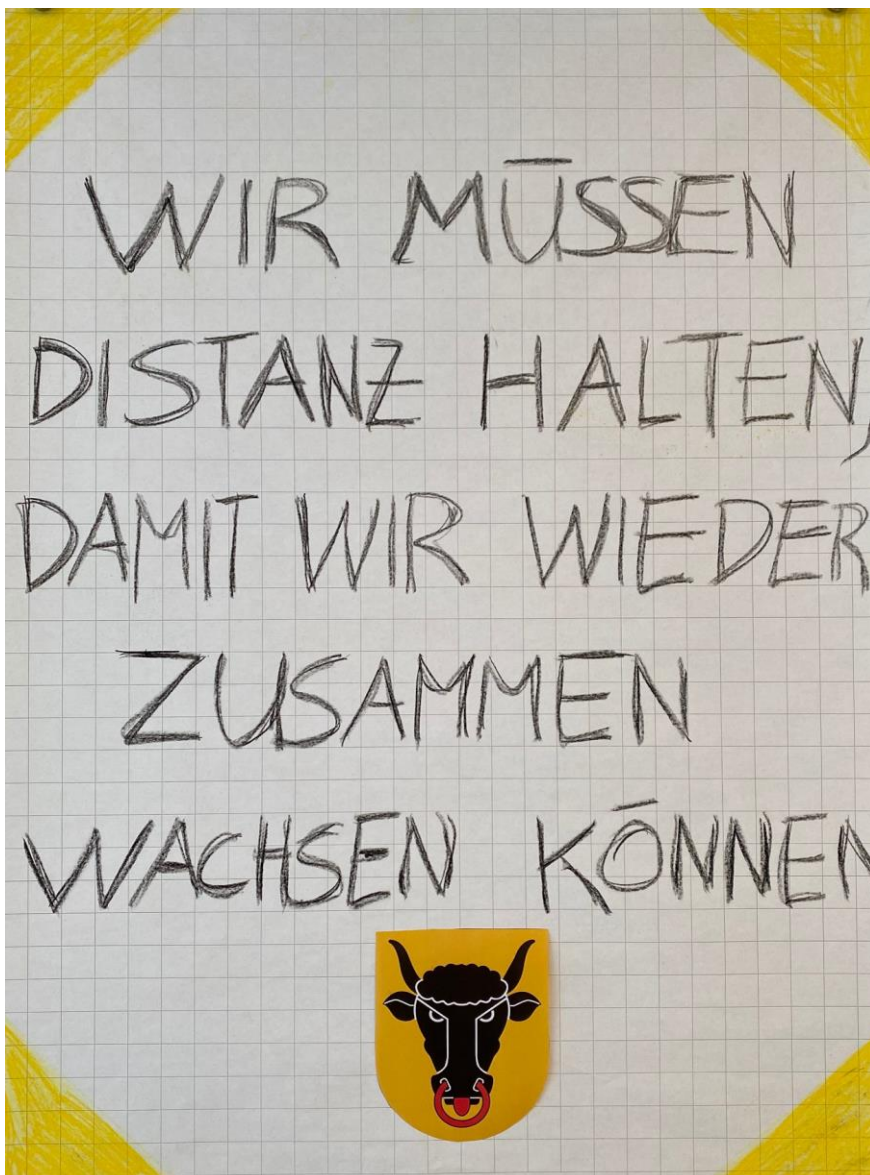 WIR MÜSSEN
DISTANZ HALTEN,
DAMIT WIR WIEDER
ZUSAMMEN
WACHSEN KÖNNEN